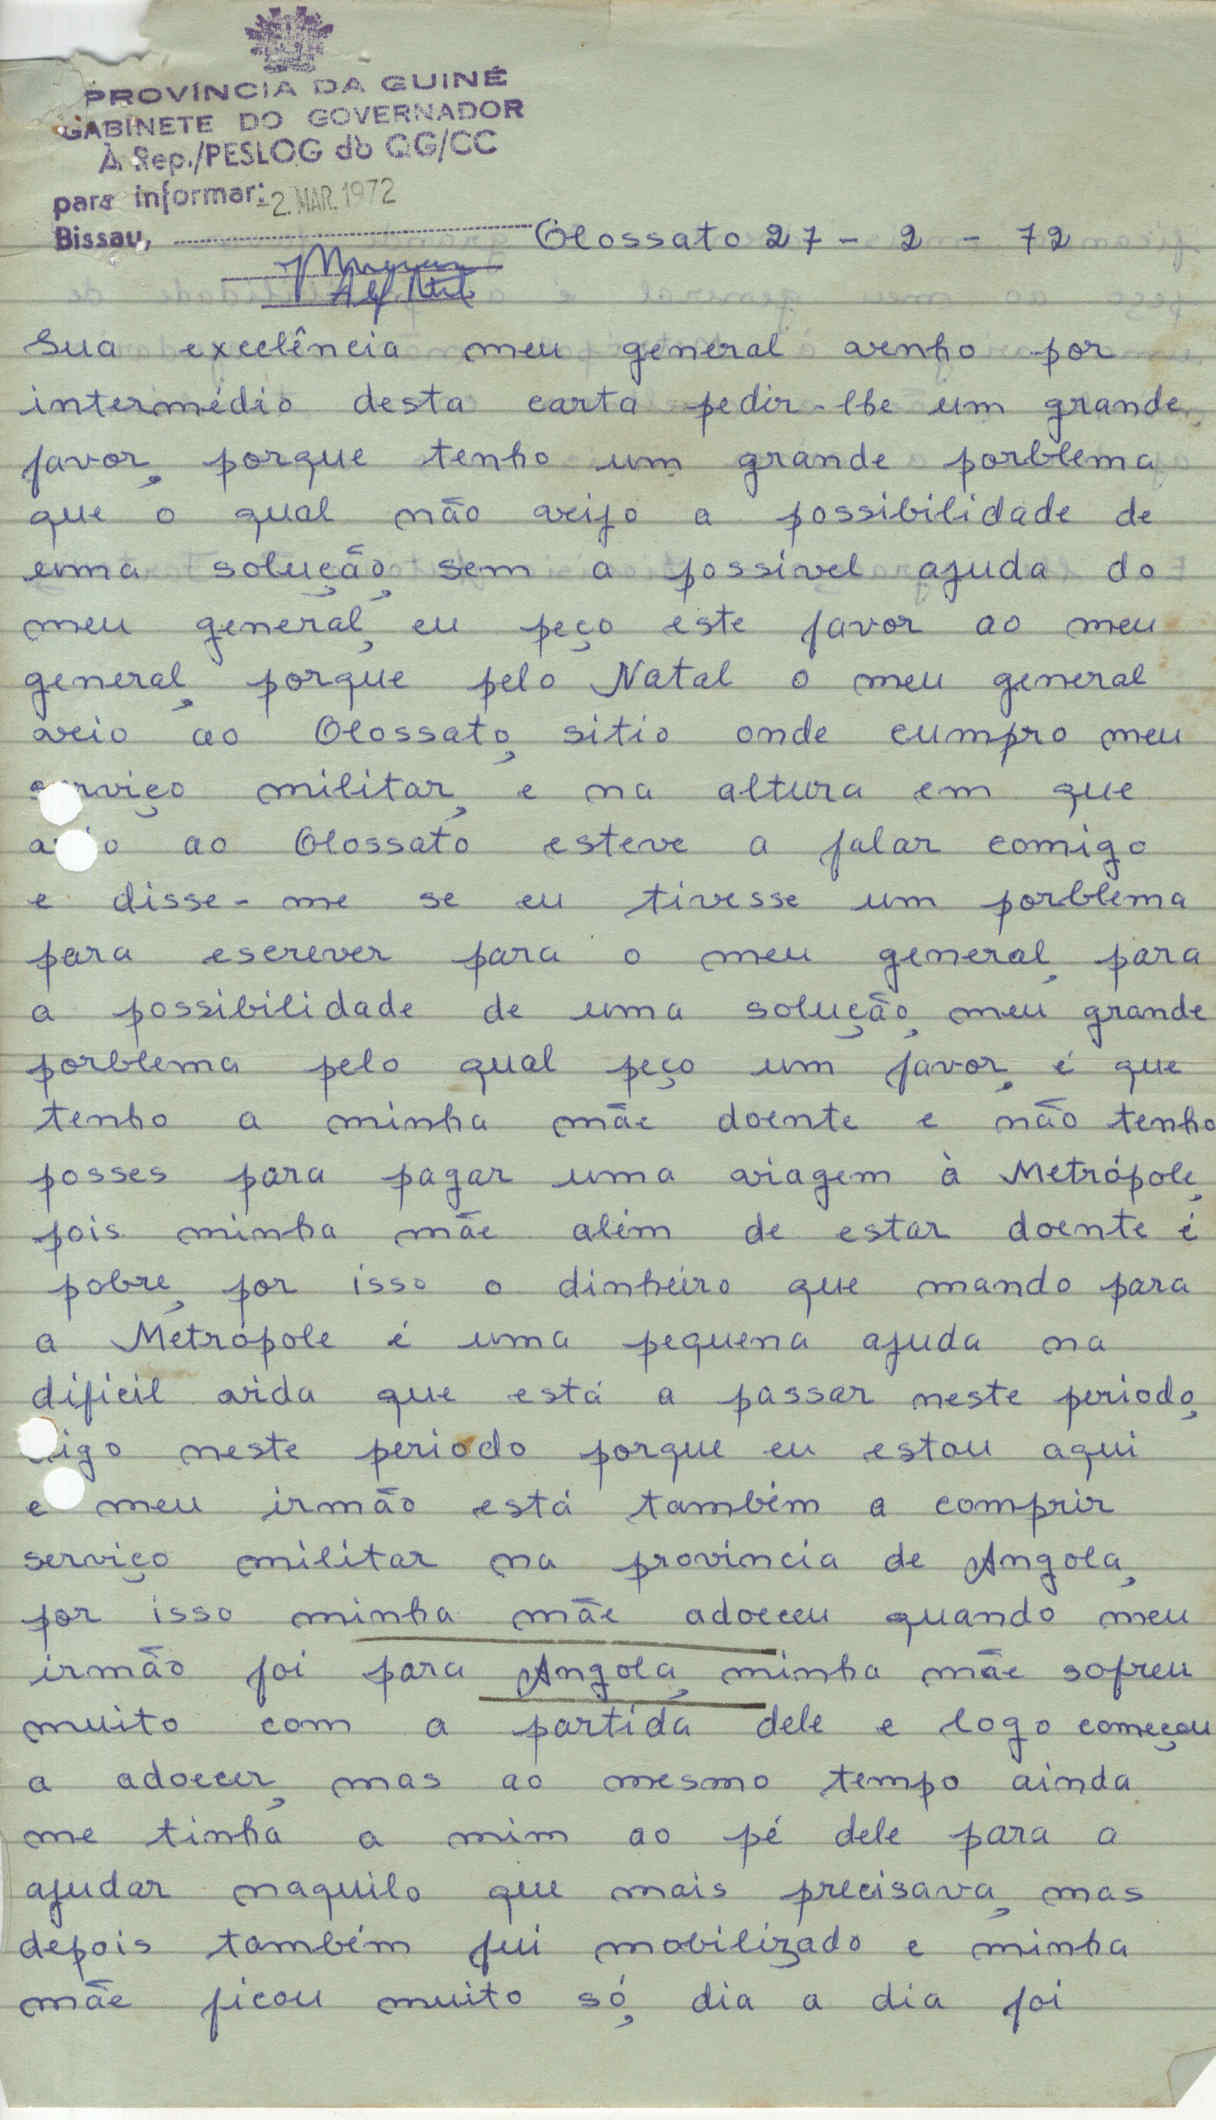 PROVÍNCIA DA GUINÉ
GABINETE DO GOVERNADOR
À Rep./PESLOG do QG/CC
para informar:
-2. MAR. 1972
Bissau,
Olossato 27 - 2 - 72
Sua excelência meu general venho por
intermédio desta carta pedir-lhe um grande
favor, porque tenho um grande porblema
que o qual não veijo a possibilidade de
uma solução, sem a possivel ajuda do
meu general, eu peço este favor ao meu
general, porque pelo Natal o meu general
veio ao Olossato, sitio onde cumpro meu
serviço militar, e na altura em que
veio ao Olossato esteve a falar comigo
e disse-me se eu tivesse um porblema
para escrever para o meu general, para
a possibilidade de uma solução, meu grande
porblema pelo qual peço um favor, é que
tenho a minha mãe doente e não tenho
posses para pagar uma viagem à Metrópole,
pois minha mãe além de estar doente é
pobre, por isso o dinheiro que mando para
a Metrópole é uma pequena ajuda na
dificil vida que está a passar neste periodo,
digo neste periodo porque eu estou aqui
e meu irmão está também a comprir
serviço militar na provincia de Angola,
por isso minha mãe adoeceu quando meu
irmão foi para Angola, minha mãe sofreu
muito com a partida dele e logo começou
a adoecer, mas ao mesmo tempo ainda
me tinha a mim ao pé dele para a
ajudar naquilo que mais precisava, mas
depois também fui mobilizado e minha
mãe ficou muito só, dia a dia foi